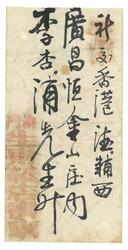 祈交香港德輔西
廣昌恒金山庄内
李杏浦先生升